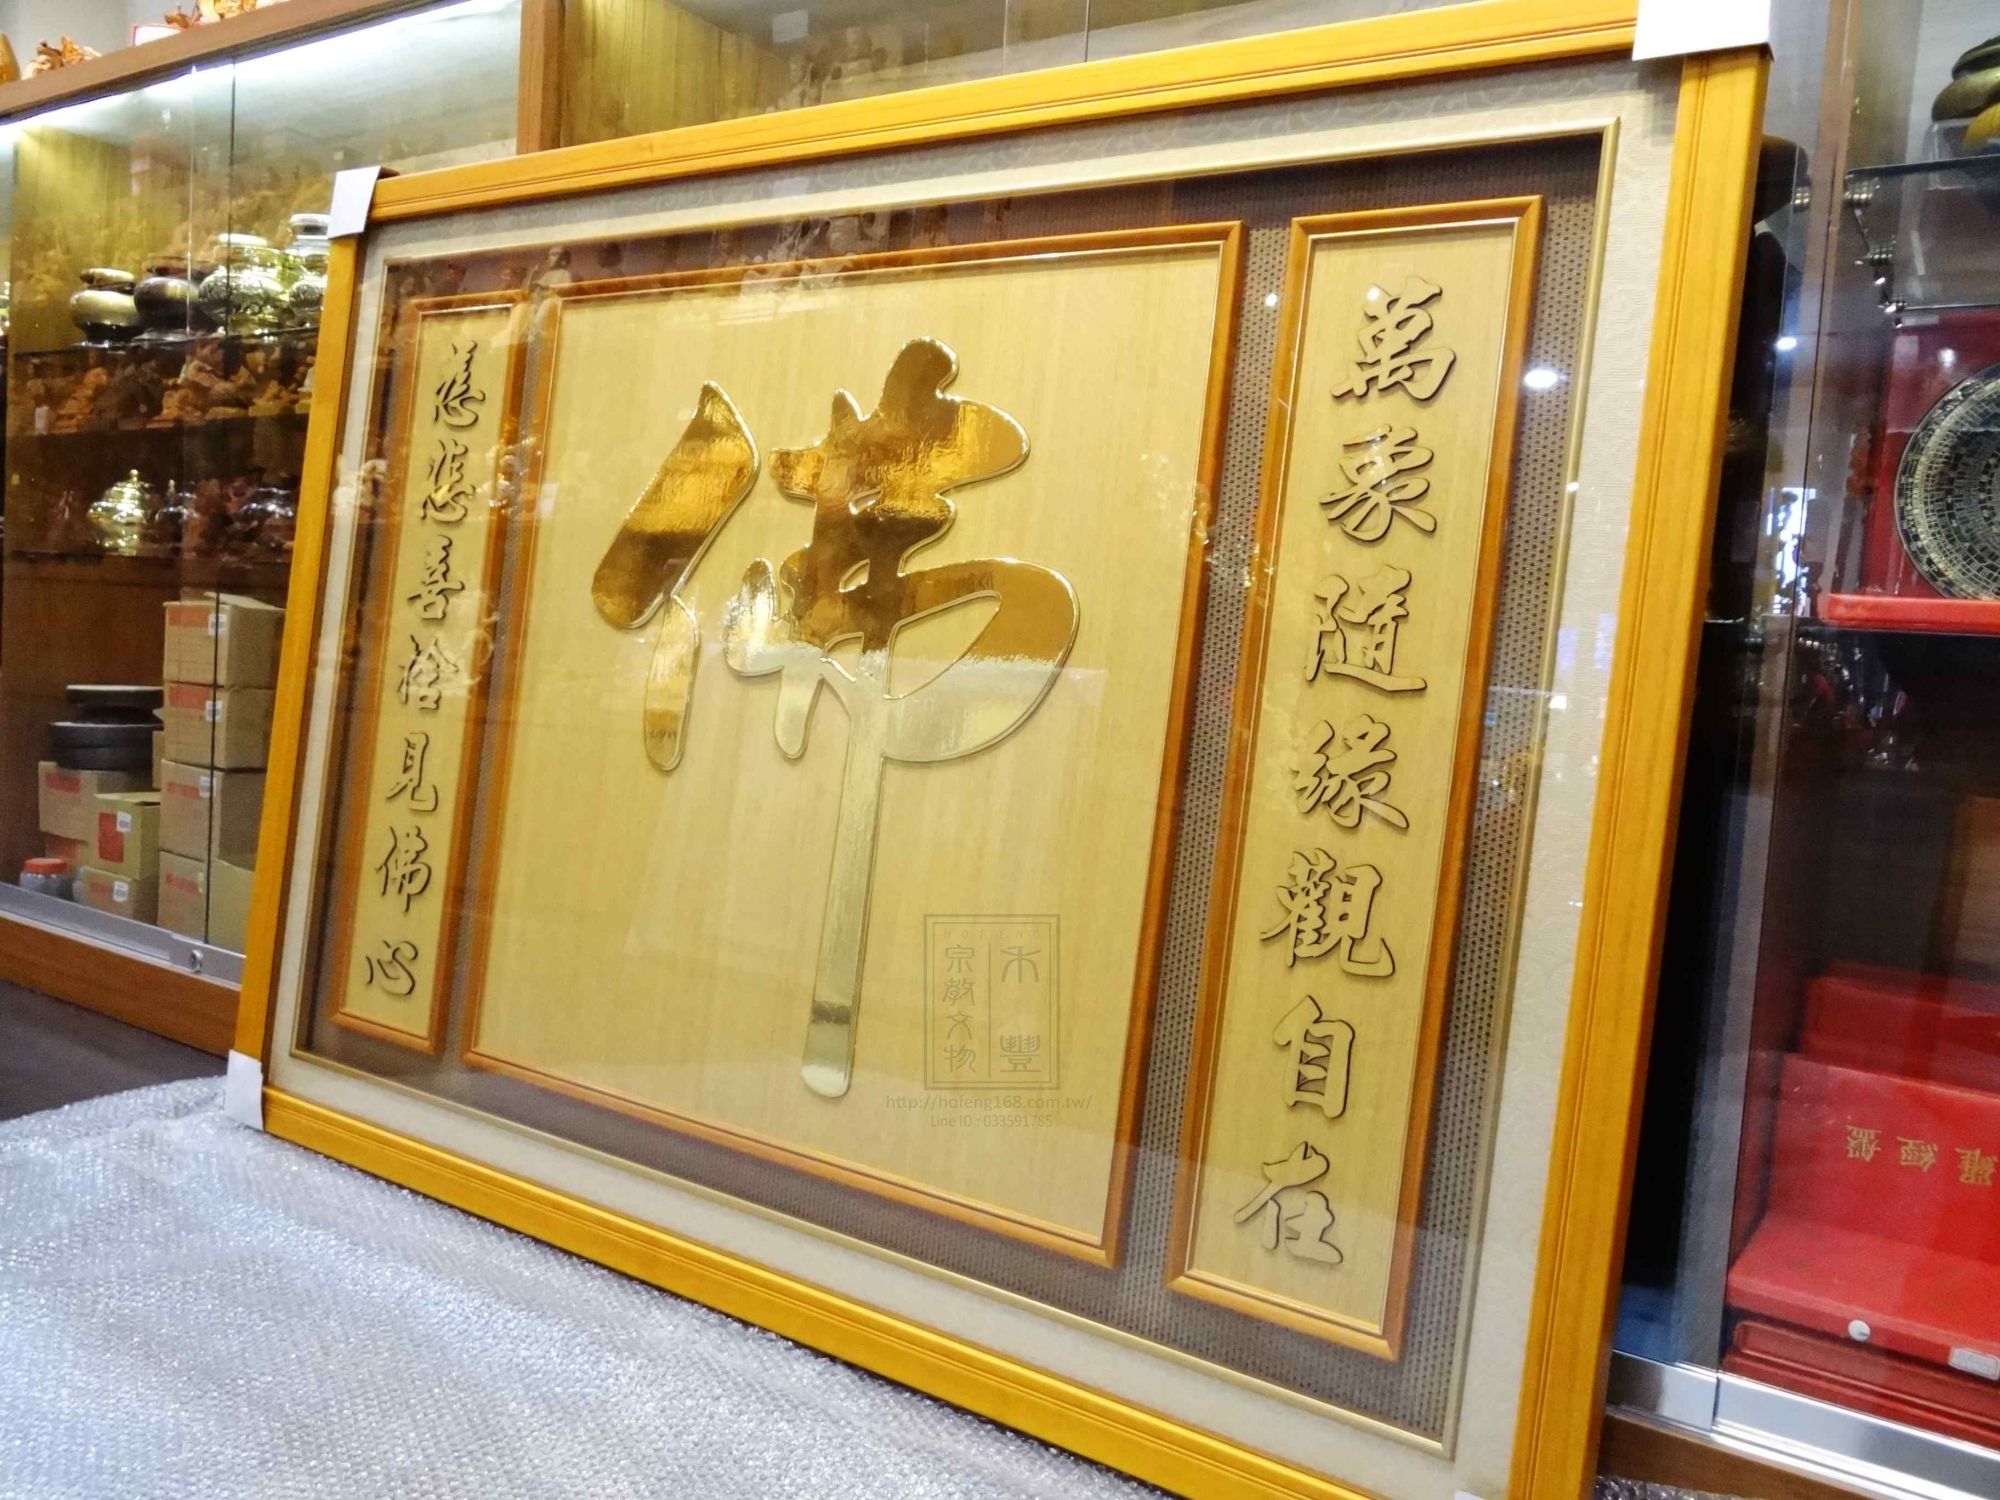 萬象隨緣觀自在
佛
慈悲喜捨見佛心
HOFENG
禾豐
宗教文物
http://hofeng168.com.tw/
Line ID : 033591785
羅經盤